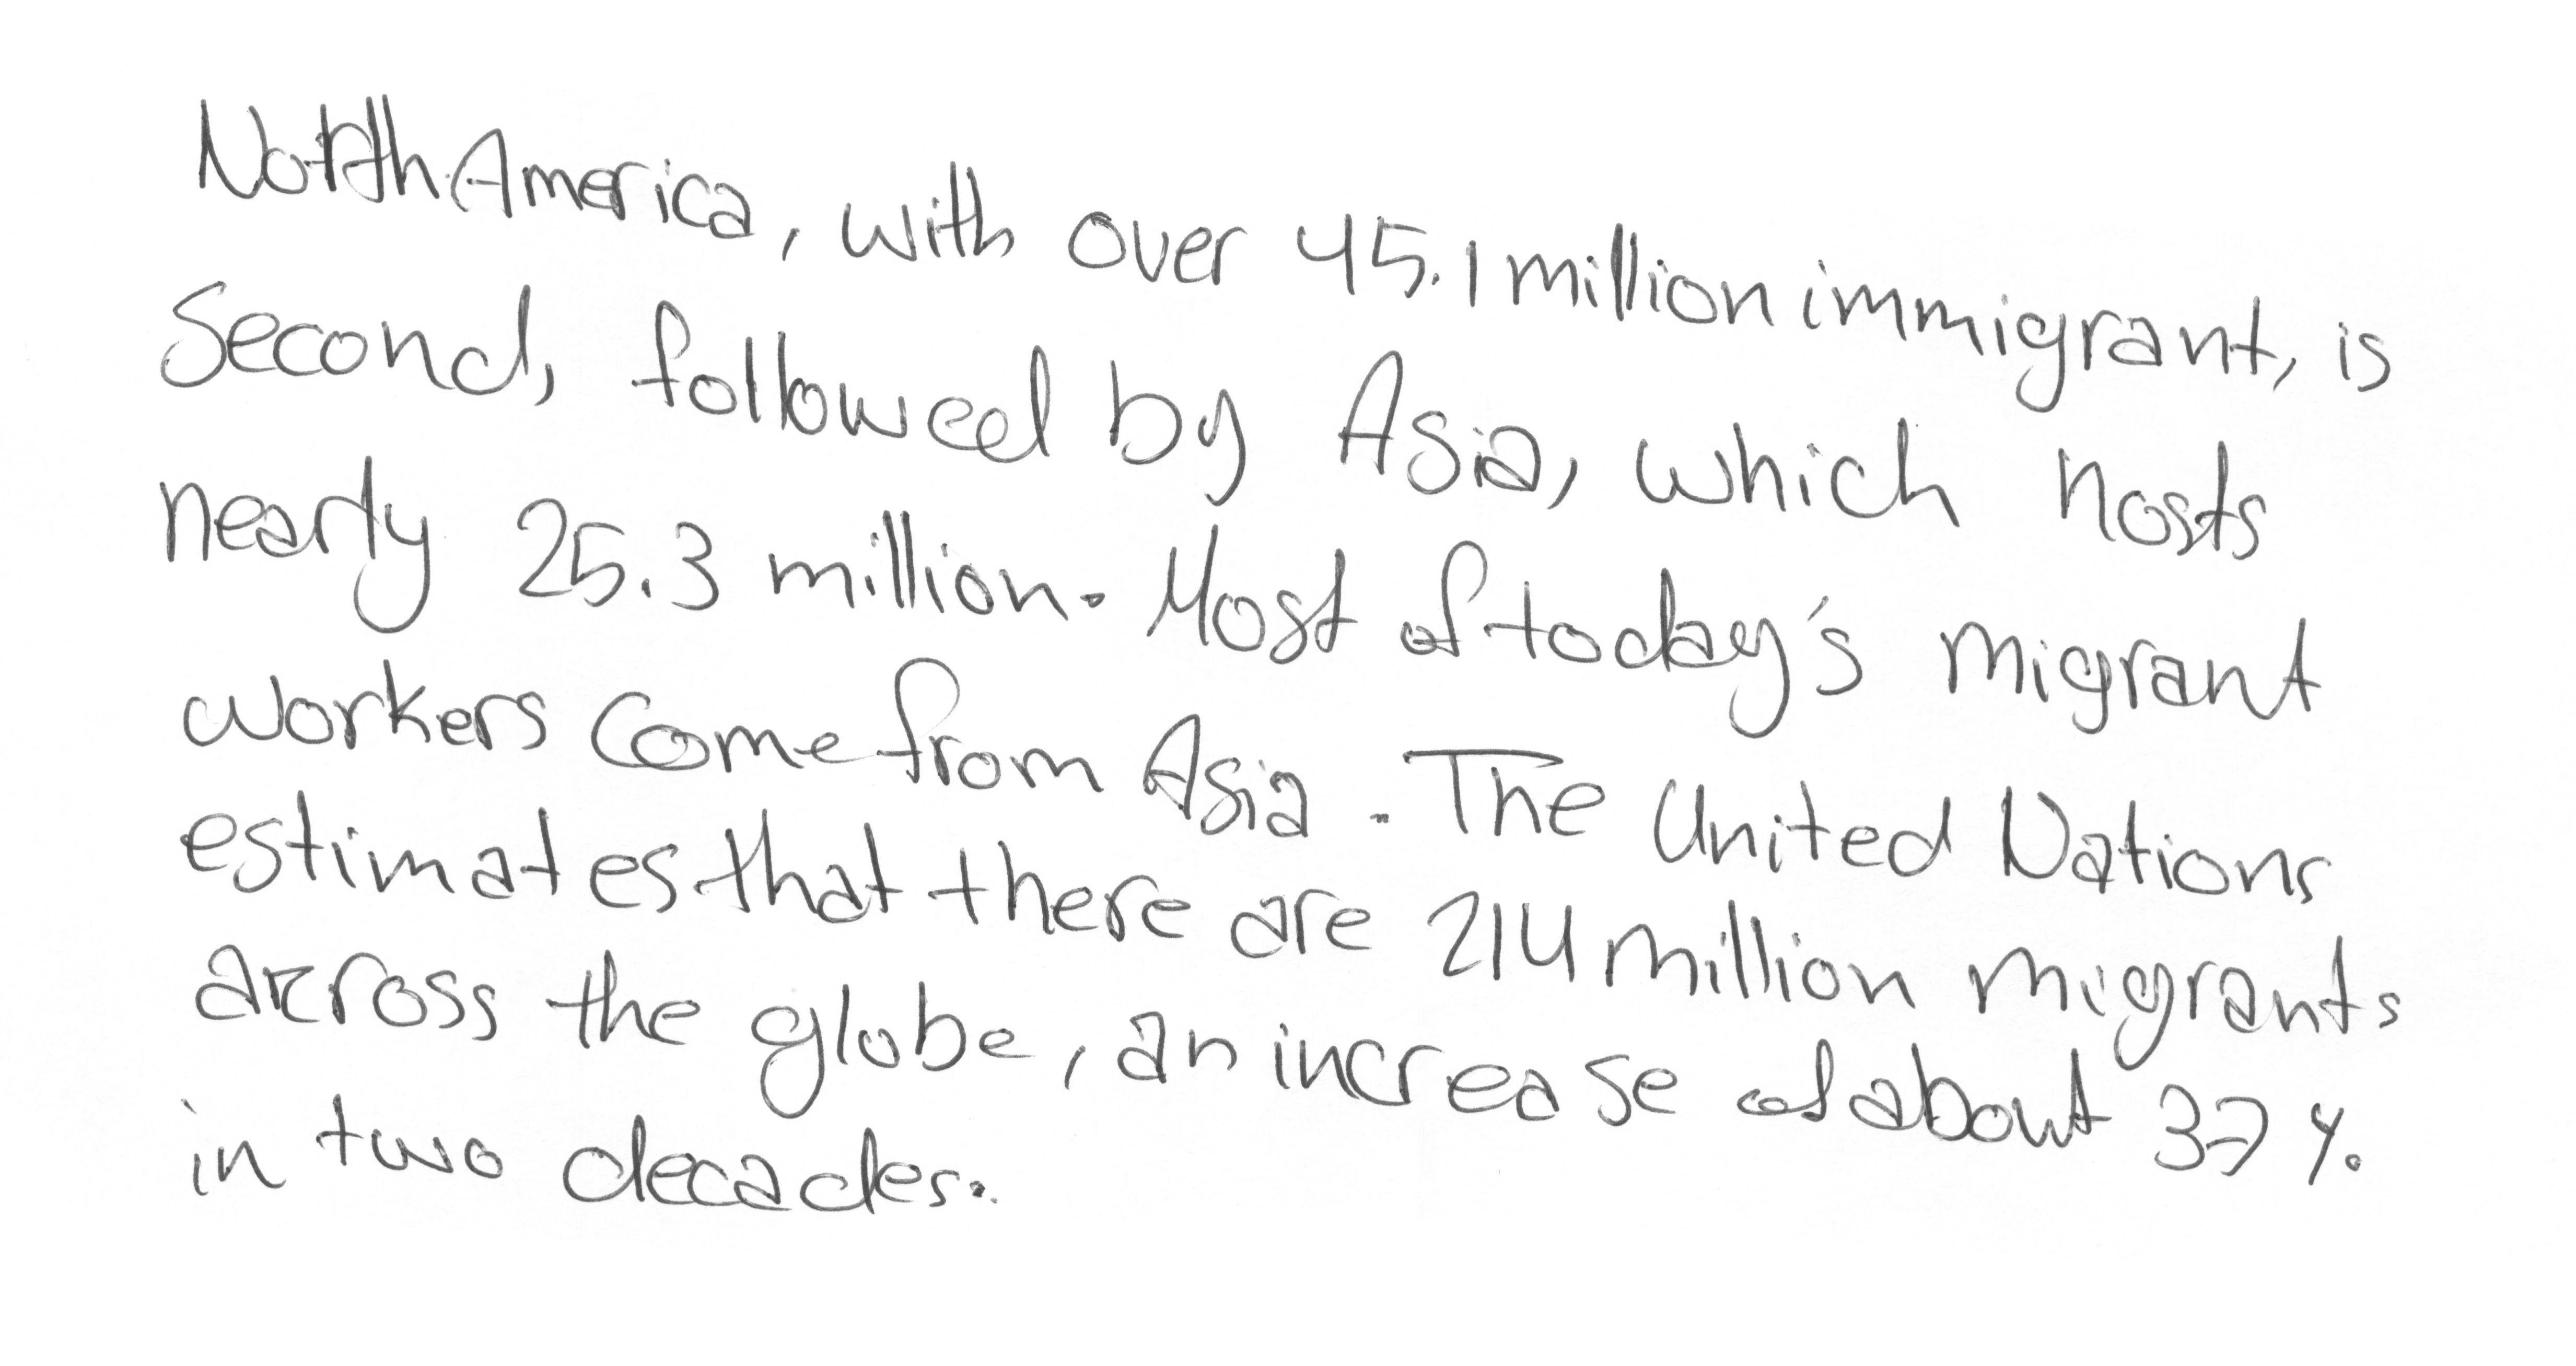 North America, with over 45.1 million immigrant, is
Second, followed by Asia, which hosts
nearly 25.3 million. Most of today's migrant
workers come from Asia. The United Nations
estimates that there are 214 million migrants
across the globe, an increase of about 37%
in two decades.